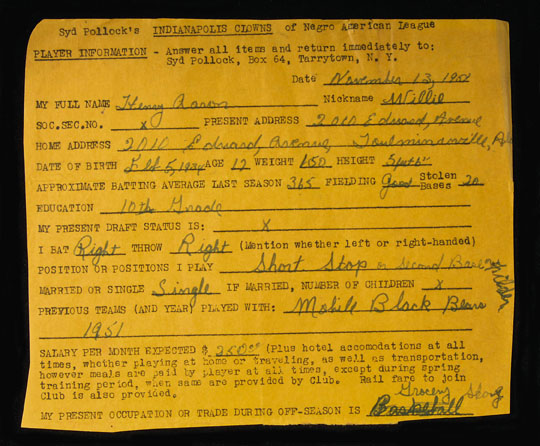 Syd Pollock's INDIANAPOLIS CLOWNS of Negro American League
PLAYER INFORMATION - Answer all items and return immediately to:
Syd Pollock, Box 64, Tarrytown, N. Y.
Date November 13, 1951
MY FULL NAME Henry Aaron Nickname Willie
SOC.SEC.NO. x PRESENT ADDRESS 2010 Edward, Avenue
HOME ADDRESS 2010 Edward, Avenue, Toulminville, Ala
DATE OF BIRTH Feb 5, 1934 AGE 17 WEIGHT 150 HEIGHT
APPROXIMATE BATTING AVERAGE LAST SEASON 365 FIELDING Good Stolen Bases 20
EDUCATION 10th Grade
MY PRESENT DRAFT STATUS IS: X
I BAT Right THROW Right (Mention whether left or right-handed)
POSITION OR POSITIONS I PLAY Short Stop or Second Base
MARRIED OR SINGLE Single IF MARRIED, NUMBER OF CHILDREN x
PREVIOUS TEAMS (AND YEAR) PLAYED WITH: Mobile Black Bears
1951
SALARY PER MONTH EXPECTED $ 250.00 (Plus hotel accomodations at all
times, whether playing at home or traveling, as well as transportation,
however meals are paid by player at all times, except during spring
training period, when same are provided by Club. Rail fare to join
Club is also provided.
Grocery
MY PRESENT OCCUPATION OR TRADE DURING OFF-SEASON IS